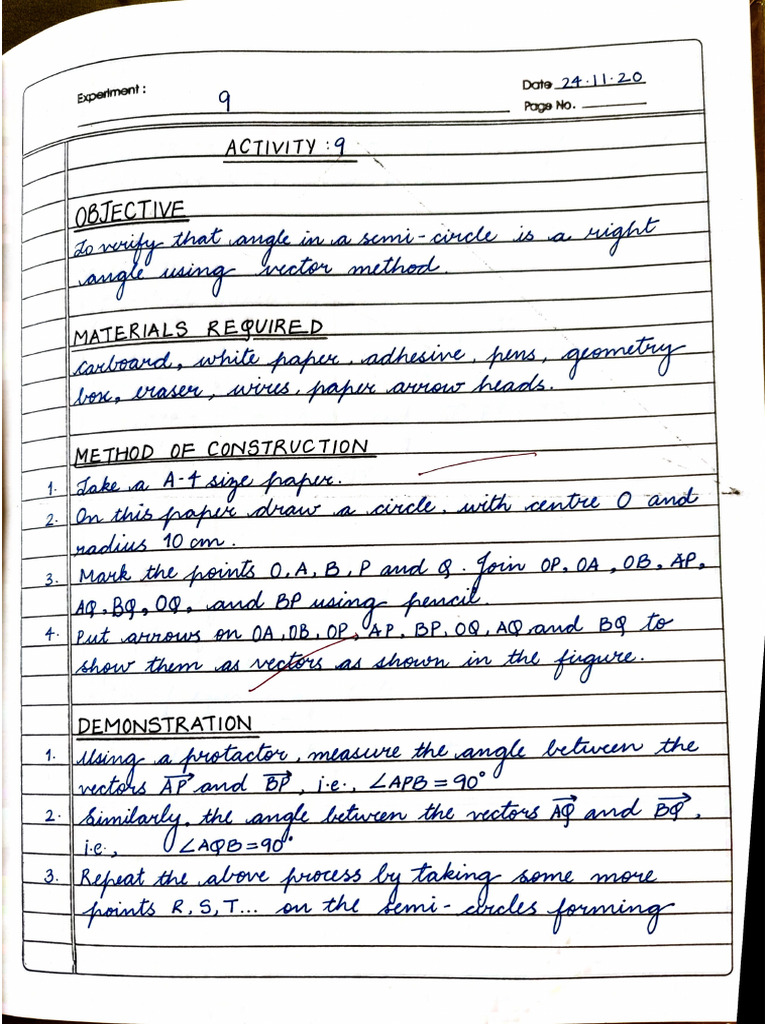 Experiment : 9 Date 24.11.20
Page No.
ACTIVITY : 9
OBJECTIVE
To verify that angle in a semi-circle is a right
angle using vector method.
MATERIALS REQUIRED
carboard, white paper, adhesive, pens, geometry
box, eraser, wires, paper arrow heads.
METHOD OF CONSTRUCTION
1. Take a A-4 size paper.
2. On this paper draw a circle, with centre O and
radius 10 cm.
3. Mark the points O, A, B, P and Q. Join OP, OA, OB, AP,
AQ, BQ, OQ, and BP using pencil.
4. Put arrows on OA, OB, OP, AP, BP, OQ, AQ and BQ to
show them as vectors as shown in the fugure.
DEMONSTRATION
1. Using a protactor, measure the angle between the
vectors A͞P⃗ and B͞P⃗, i.e., ∠APB = 90°
2. Similarly, the angle between the vectors AQ⃗ and BQ⃗,
i.e., ∠AQB = 90°
3. Repeat the above process by taking some more
points R, S, T... on the semi-circles forming